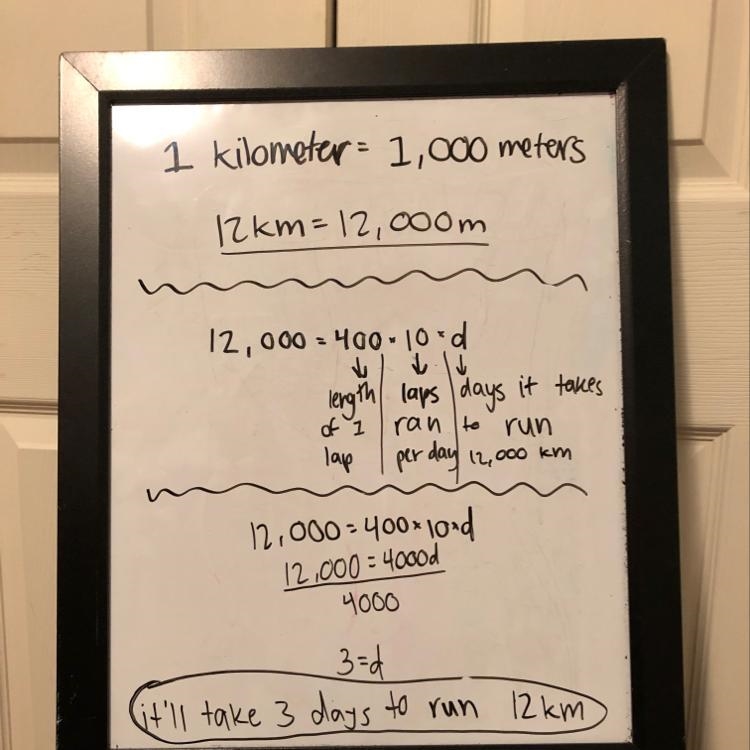 1 kilometer = 1,000 meters
12km = 12,000m
12,000 = 400 · 10 · d
length of 1 lap
laps ran per day
days it takes to run 12,000 km
12,000 = 400 × 10 × d
12,000 = 4000d
4000
3 = d
it'll take 3 days to run 12km